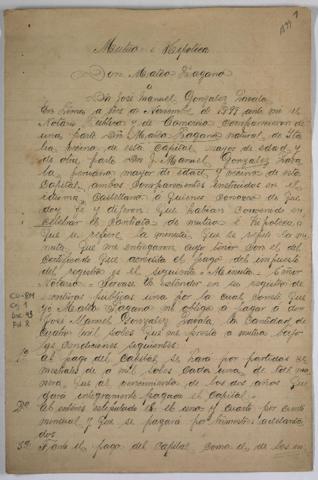 Mutuo e Hipoteca
Don Mateo Zagano
á
Dn José Manuel Gonzalez Zavala
En Lima, a dos de Noviembre de 1899 ante mi el
Notario Publico y de comparecieron de
una parte Dn Mateo Zagano natural, de Ita
lia, vecino de esta Capital, mayor de edad y
de otra parte Don J. Manuel Gonzalez Zava
la, peruano mayor de edad, y vecino de esta
Capital, ambos comparecientes instruidos en el
idioma Castellano á quienes conozco de que
doy fé y dijeron que habian convenido en
celebrar el contrato de mutuo é Hipoteca á
que se refiere la minuta
nuta, que me entregaron cuyo tenor con el del
Certificado que acredita el pago del impuesto
del registro es el siguiente = Minuta = Señor
Notario = Sirvase Ud estender en su registro de
escrituras publicas una por la cual conste que
yo Mateo Zagano me obligo a pagar a don
José Manuel Gonzalez Zavala, la Cantidad de
Cuatro mil soles que me presta a mutuo bajo
las condiciones siguientes:
1o El pago del Capital, se hará por partidas se
mestrales de a mil soles cada una de tal ma
nera, que al vencimiento de los dos años que
dará integramente pagado el Capital =
2o El interes estipulado es el uno y cuarto por ciento
mensual y que se pagará por trimestres adelanta
dos
3o el pago del Capital como el de los in
CU-BM
C. 1
Doc 43
Fol. 2
1